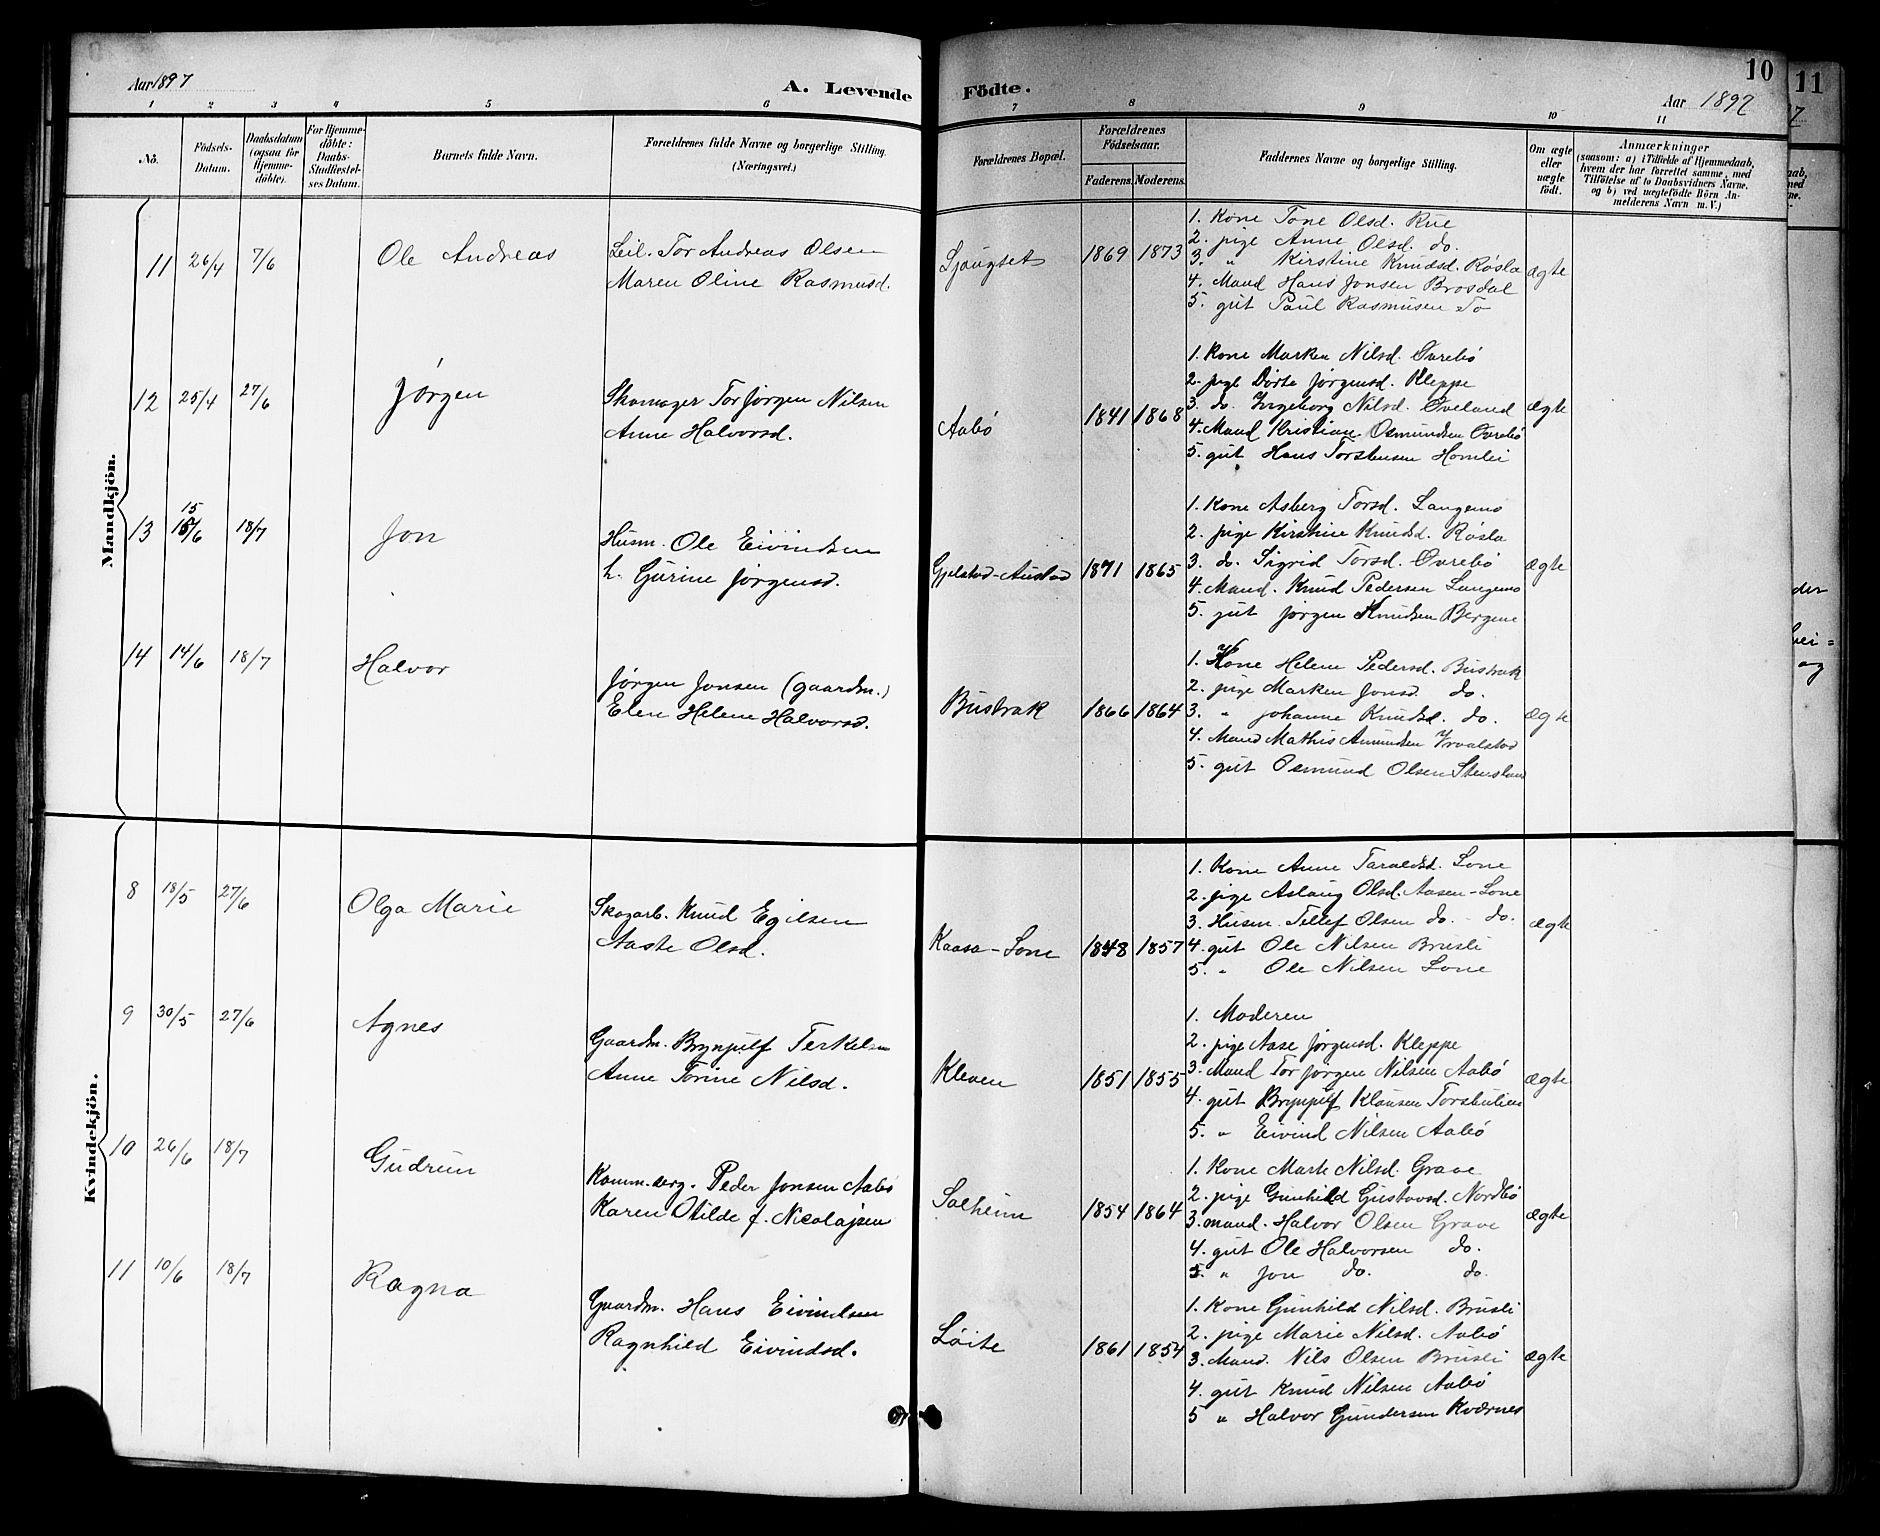 Aar 1897
A. Levende Födte.
10
11
Aar 1897
1 2 3 4 5 6 7 8 9 10 11
No.
Födsels-Datum.
Daabsdatum (ogsaa for Hjemmedöbte).
For Hjemmedöbte: Daabs-Stadfestelses Datum.
Barnets fulde Navn.
Forældrenes fulde Navne og borgerlige Stilling. (Næringsvei.)
Forældrenes Bopæl.
Forældrenes Födselsaar.
Faderens. Moderens.
Faddernes Navne og borgerlige Stilling.
Om ægte eller uægte födt.
Anmærkninger
(saasom: a) i Tilfælde af Hjemmedaab,
hvem der har forrettet samme, med
Tilföielse af to Daabsvidners Navne,
og b) ved uægtefödte Börn Anmelderens Navn m. V.)
Mandkjön.
11 26/4 7/6 Ole Andreas
Leil. Tor Andreas Olsen
Maren Oline Rasmusd.
Sjaugtet 1869 1873
1. Kone Tone Olsd. Rue
2. pige Anne Olsd. do.
3. " Kirstine Knudsd. Røsla
4. Mand Hans Jonsen Brosdal
5. gut Paul Rasmusen To
ægte
12 25/4 27/6 Jørgen
Skomager Tor Jørgen Nilsen
Anne Halvorsd.
Aabö 1841 1868
1. Kone Marken Nilsd. Øvrebö
2. pige Dörte Jørgensd. Kleppe
3. do. Ingeborg Nilsd. Øveland
4. Mand Kristian Osmundsen Øvrebö
5. gut Hans Torstensen Homlei
ægte
13 15/6 18/7 Jon
Husm. Ole Eivindsen
h. Gurine Jørgensd.
Gjelstad-Austad 1871 1865
1. Kone Asberg Torsd. Langemo
2. pige Kirstine Knudsd. Røsla
3. do. Sigrid Torsd. Øvrebö
4. Mand. Knud Pedersen Langemo
5. gut Jørgen Knudsen Bergene
ægte
14 14/6 18/7 Halvor
Jørgen Jonsen (gaardm.)
Elen Helene Halvorsd.
Bustrak 1866 1864
1. Kone Helene Pedersd. Bustrak
2. pige Marken Jonsd. do.
3. " Johanne Knudsd. do.
4. Mand Mathis Amundsen Vraalstad
5. gut Osmund Olsen Stensland
ægte
Kvindekjön.
8 18/5 27/6 Olga Marie
Skogarb. Knud Egilsen
Aaste Olsd.
Kaasa-Lone 1848 1857
1. Kone Anne Taraldsd. Lone
2. pige Aslaug Olsd. Aasen-Lone
3. Husm. Tellef Olsen do. - do.
4. gut Ole Nilsen Brusli
5. " Ole Nilsen Lone
ægte
9 30/5 27/6 Agnes
Gaardm. Brynjulf Terkelsen
Anne Torine Nilsd.
Kleven 1851 1855
1. Moderen
2. pige Aase Jørgensd. Kleppe
3. Mand Tor Jørgen Nilsen Aabö
4. gut Brynjulf Klausen Torsbulien
5. " Eivind Nilsen Aabö
ægte
10 26/6 18/7 Gudrun
Komm.berg. Peder Jonsen Aabö
Karen Otilde f. Nicolajsen
Solheim 1854 1864
1. Kone Marte Nilsd. Grave
2. pige Gunhild Gustavsd. Nordbö
3. mand. Halvor Olsen Grave
4. gut Ole Halvorsen do.
5. " Jon do. do.
ægte
11 10/6 18/7 Ragna
Gaardm. Hans Eivindsen
Ragnhild Eivindsd.
Löite 1861 1854
1. Kone Gunhild Nilsd. Brusli
2. pige Marie Nilsd. Aabö
3. Mand. Nils Olsen Brusli
4. gut Knud Nilsen Aabö
5 " Halvor Gundersen Kværnes
ægte